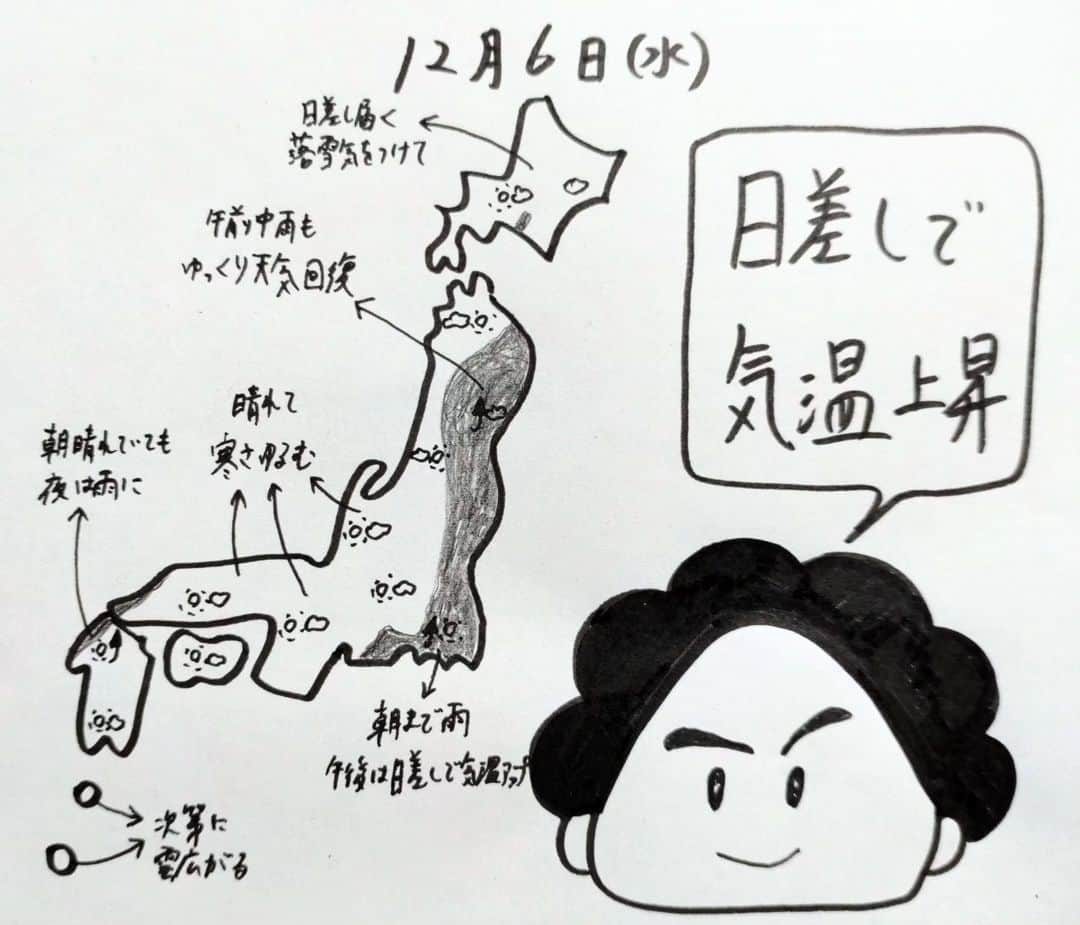 12月6日(水)
日差し届く
落雪気をつけて
午前中雨も
ゆっくり天気回復
日差しで
気温上昇
晴れて
寒さゆるむ
朝晴れでいても
夜は雨に
朝まで雨
午後は日差しで気温アップ
次第に
雲広がる